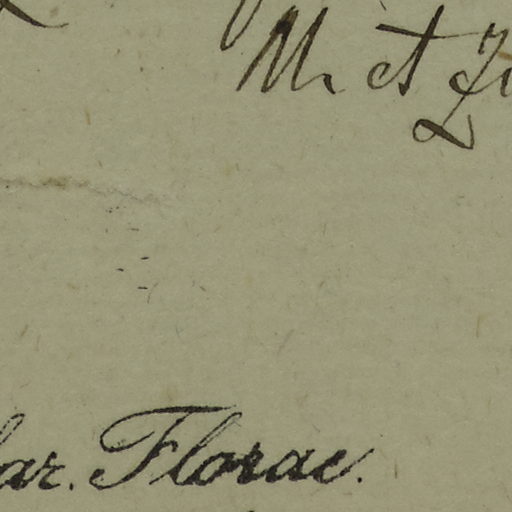 M. et Zi
ar. Florae.